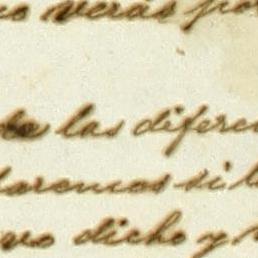 verás por
las diferen
aremos si l
vo dicho y s